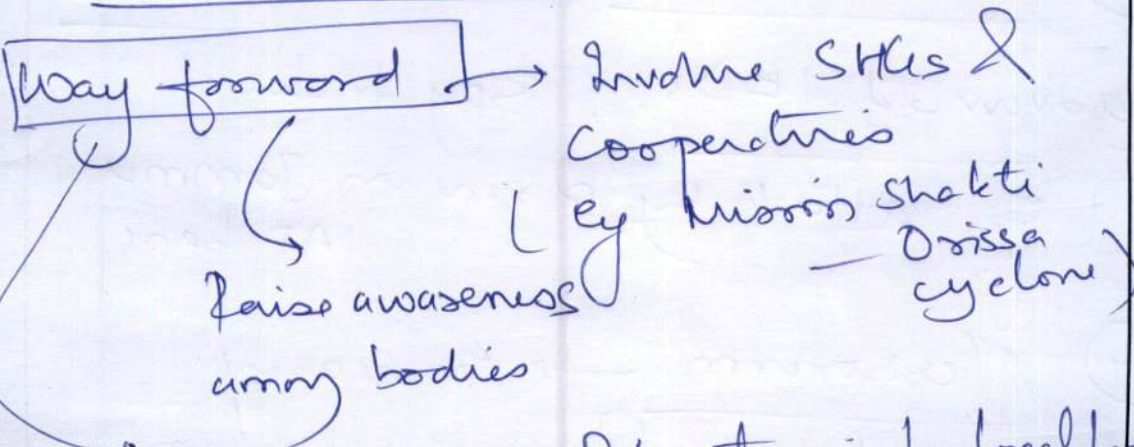 Way forward → Involve SHGs &
cooperatives
( eg Mission Shakti
– Orissa
cyclone )
Raise awareness
among bodies